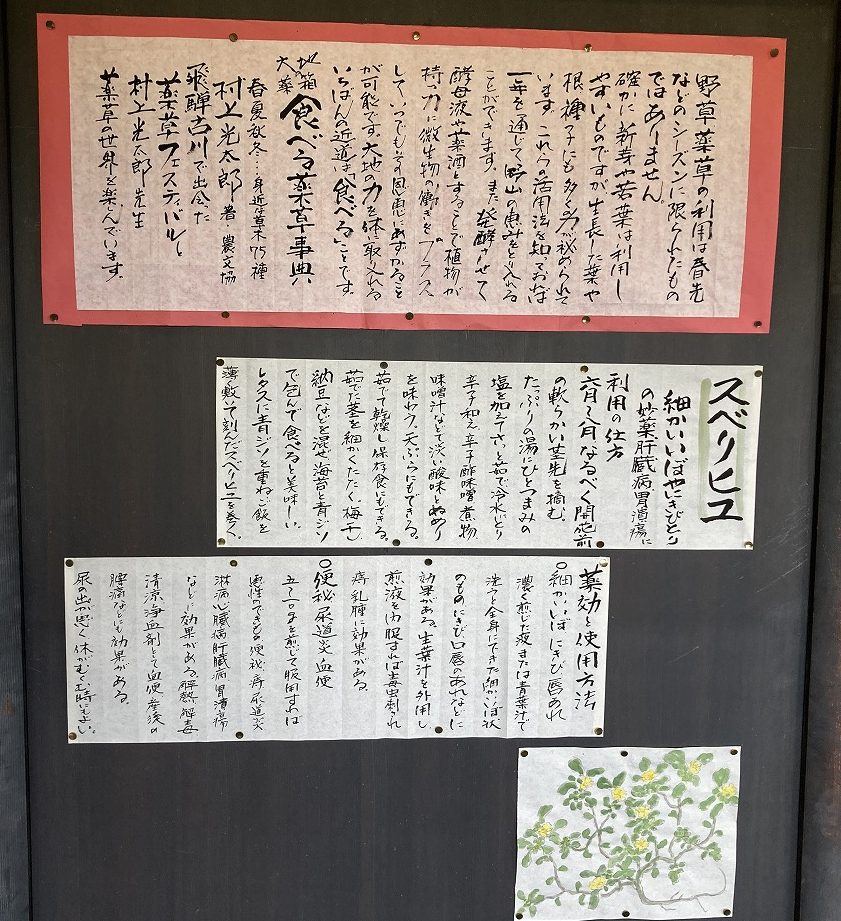 野草薬草の利用は春先
などのシーズンに限られたもの
ではありません
確かに新芽や若葉は利用し
やすいものですが生長した葉や
根、種子にも多く力が秘められて
います。これらの活用法を知っておけば
一年を通じて野山の恵みをとり入れる
ことができます。また発酵させて
酵母液や薬酒とすることで植物が
持つ力に微生物の働きをプラス
して、いつでもその恩恵にあずかること
が可能です。大地の力を体に取り入れる
いちばんの近道は「食べる」ことです。
大地の薬箱 食べる薬草事典
春夏秋冬…身近な草木75種
村上光太郎 著・農文協
飛騨古川で出会った
薬草フェスティバルと
村上光太郎先生
薬草の世界を楽しんでいます。
スベリヒユ
細かいいぼやにきびとり
の妙薬肝臓病胃潰瘍に
利用の仕方
六月〜八月なるべく開花前
の軟らかい茎先を摘む。
たっぷりの湯にひとつまみの
塩を加えてさっと茹で冷水にとり
辛子和え、辛子酢味噌、煮物、
味噌汁などで淡い酸味とぬめり
を味わう。天ぷらにもできる。
茹でて乾燥し保存食にもできる。
茹でた茎を細かくたたく、梅干し
納豆などを混ぜ海苔と青ジソ
で包んで食べると美味しい。
レタスに青ジソを重ねご飯を
薄く敷いて刻んだスベリヒユを巻く。
薬効と使用方法
○細かいいぼ にきび 唇のあれ
濃く煎じた液または青葉汁で
洗うと全身にできた細かいいぼ状
のもの にきび、口唇のあれなどに
効果がある。生葉汁を外用し、
煎液を内服すれば毒虫刺され
痔、乳腫に効果がある。
○便秘 尿道炎 血便
五〜一〇gを煎じて服用すれば
悪性のできもの 便秘 痔 尿道炎
淋病 心臓病 肝臓病 胃潰瘍
などに効果がある。解熱 解毒
清涼 浄血剤として血便 産後の
腰痛などにも効果がある。
尿の出が悪く体がむくむ時にもよい。